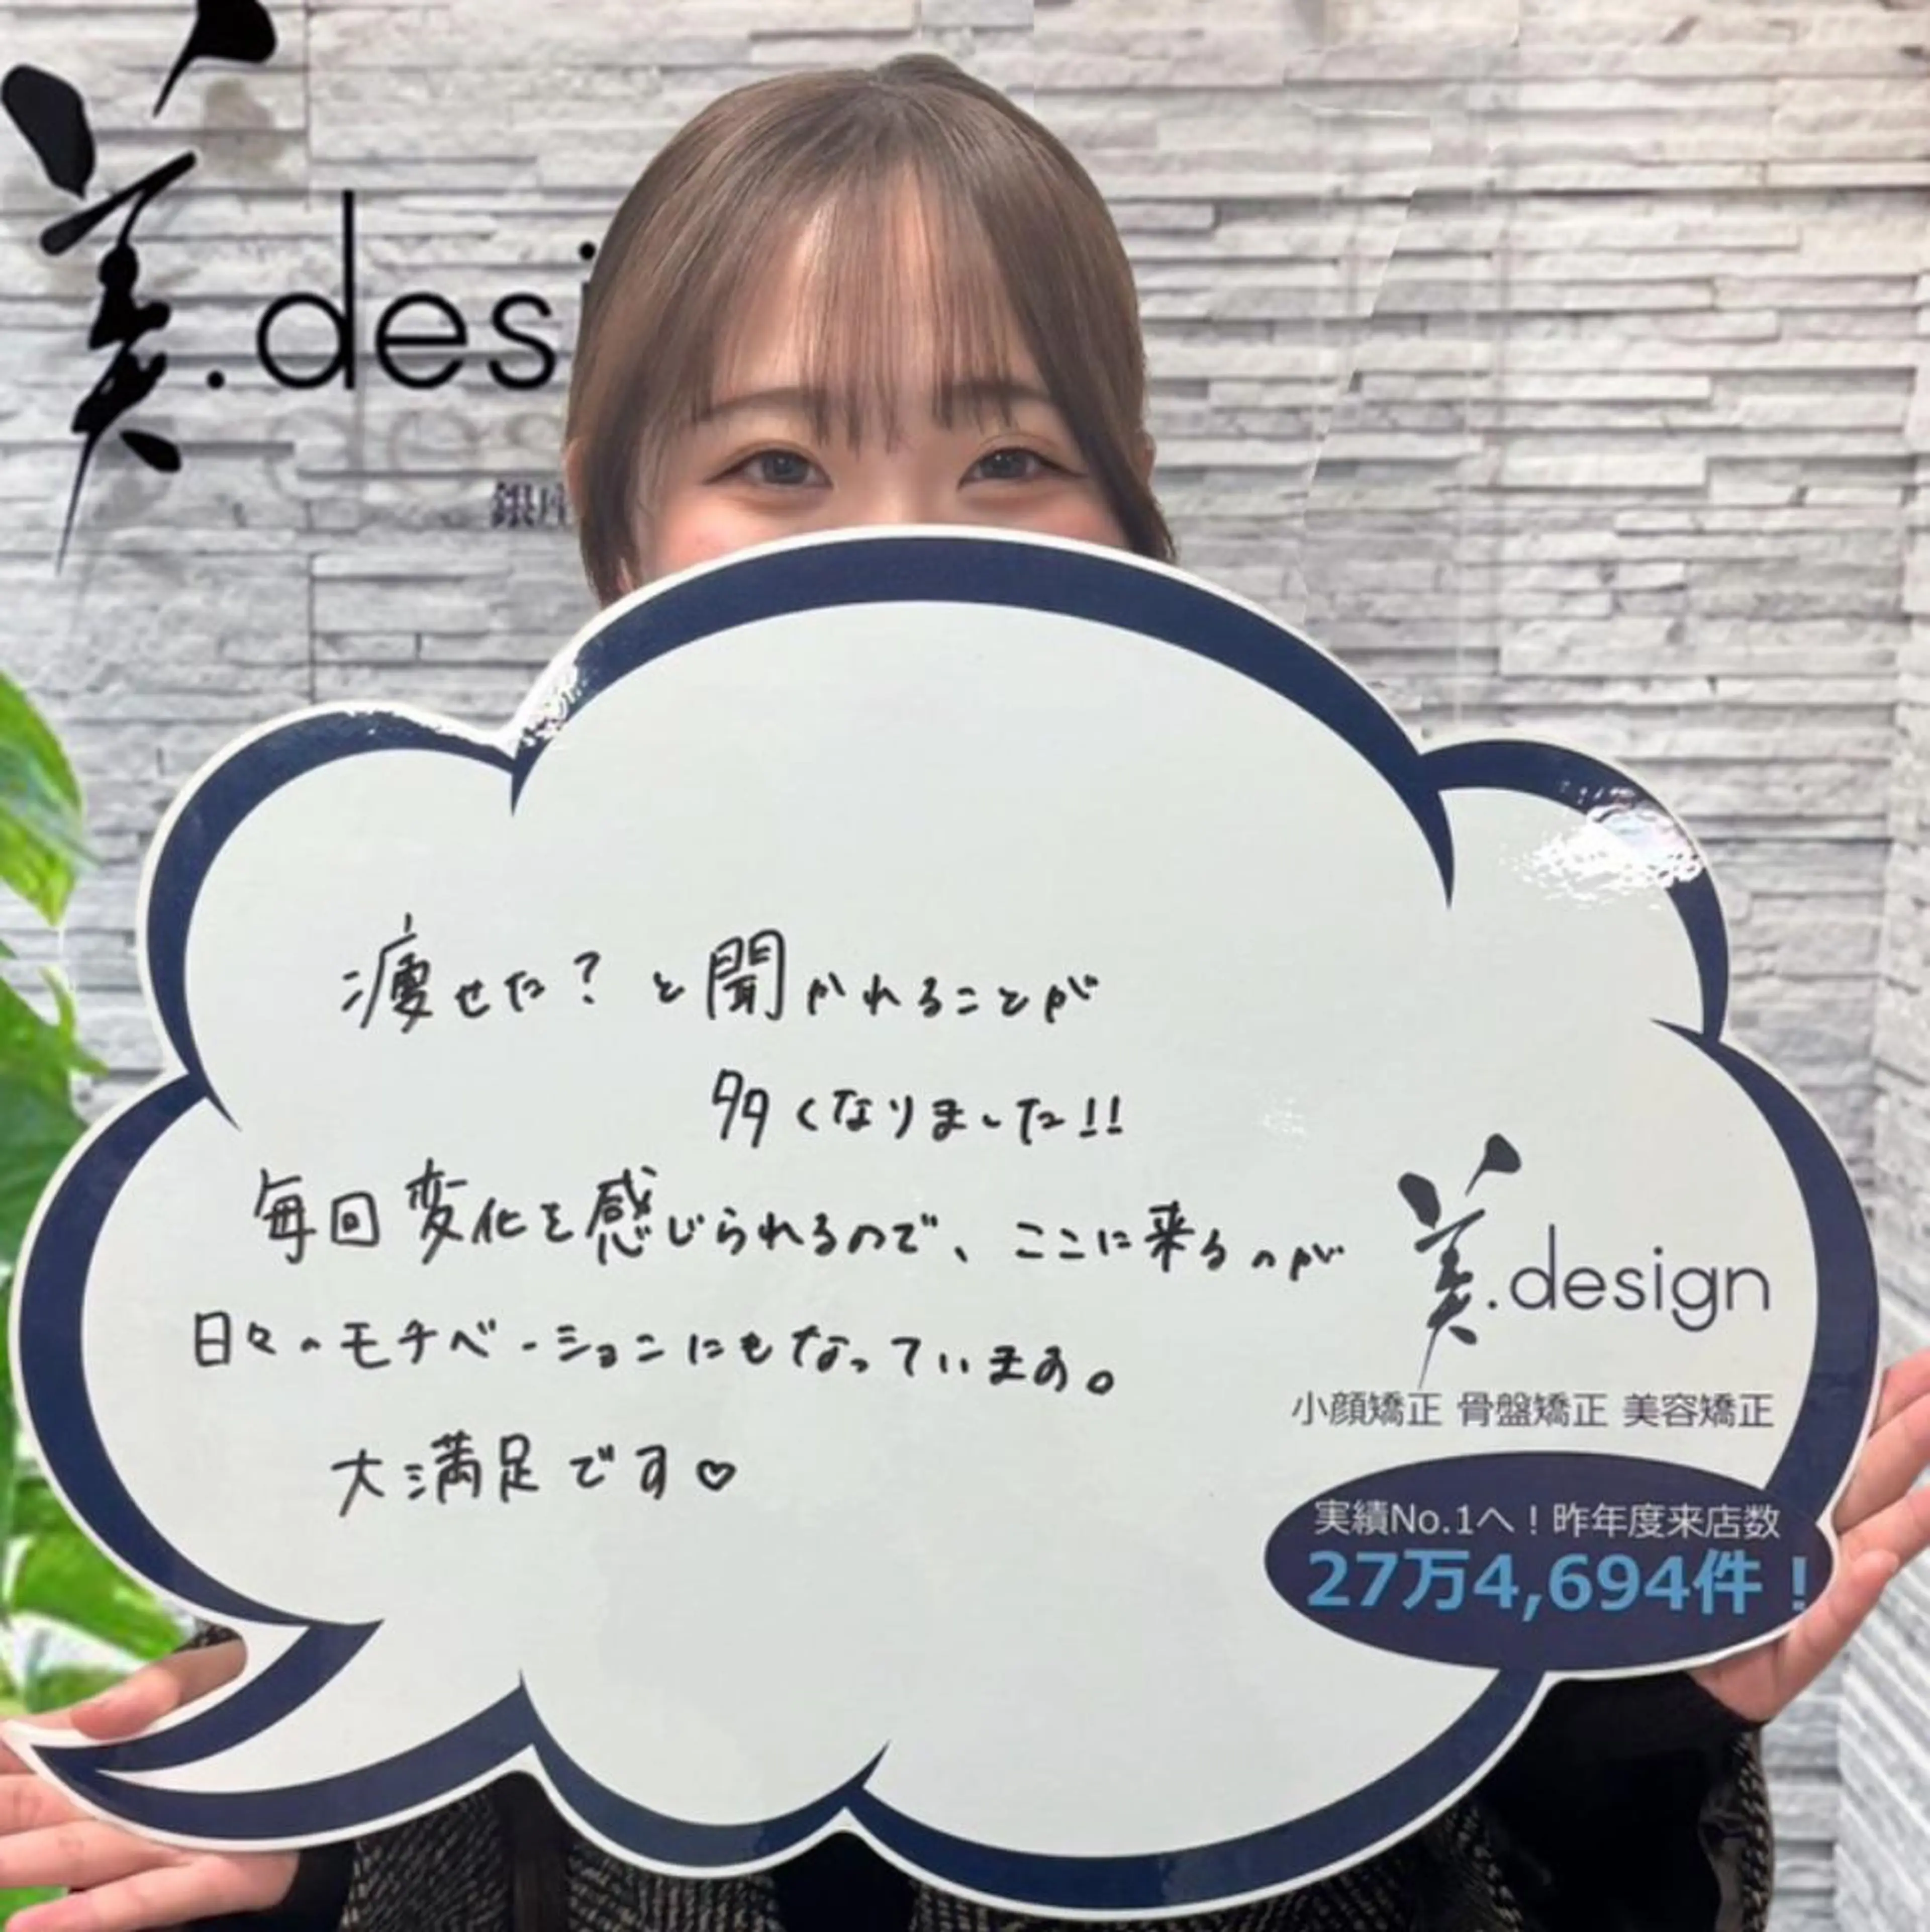 美.desi
銀座
痩せた？と聞かれることが
多くなりました!!
毎回変化を感じられるので、ここに来るのが
日々のモチベーションにもなっています。
大満足です♡
美.design
小顔矯正 骨盤矯正 美容矯正
実績No.1へ！昨年度来店数
27万4,694件！